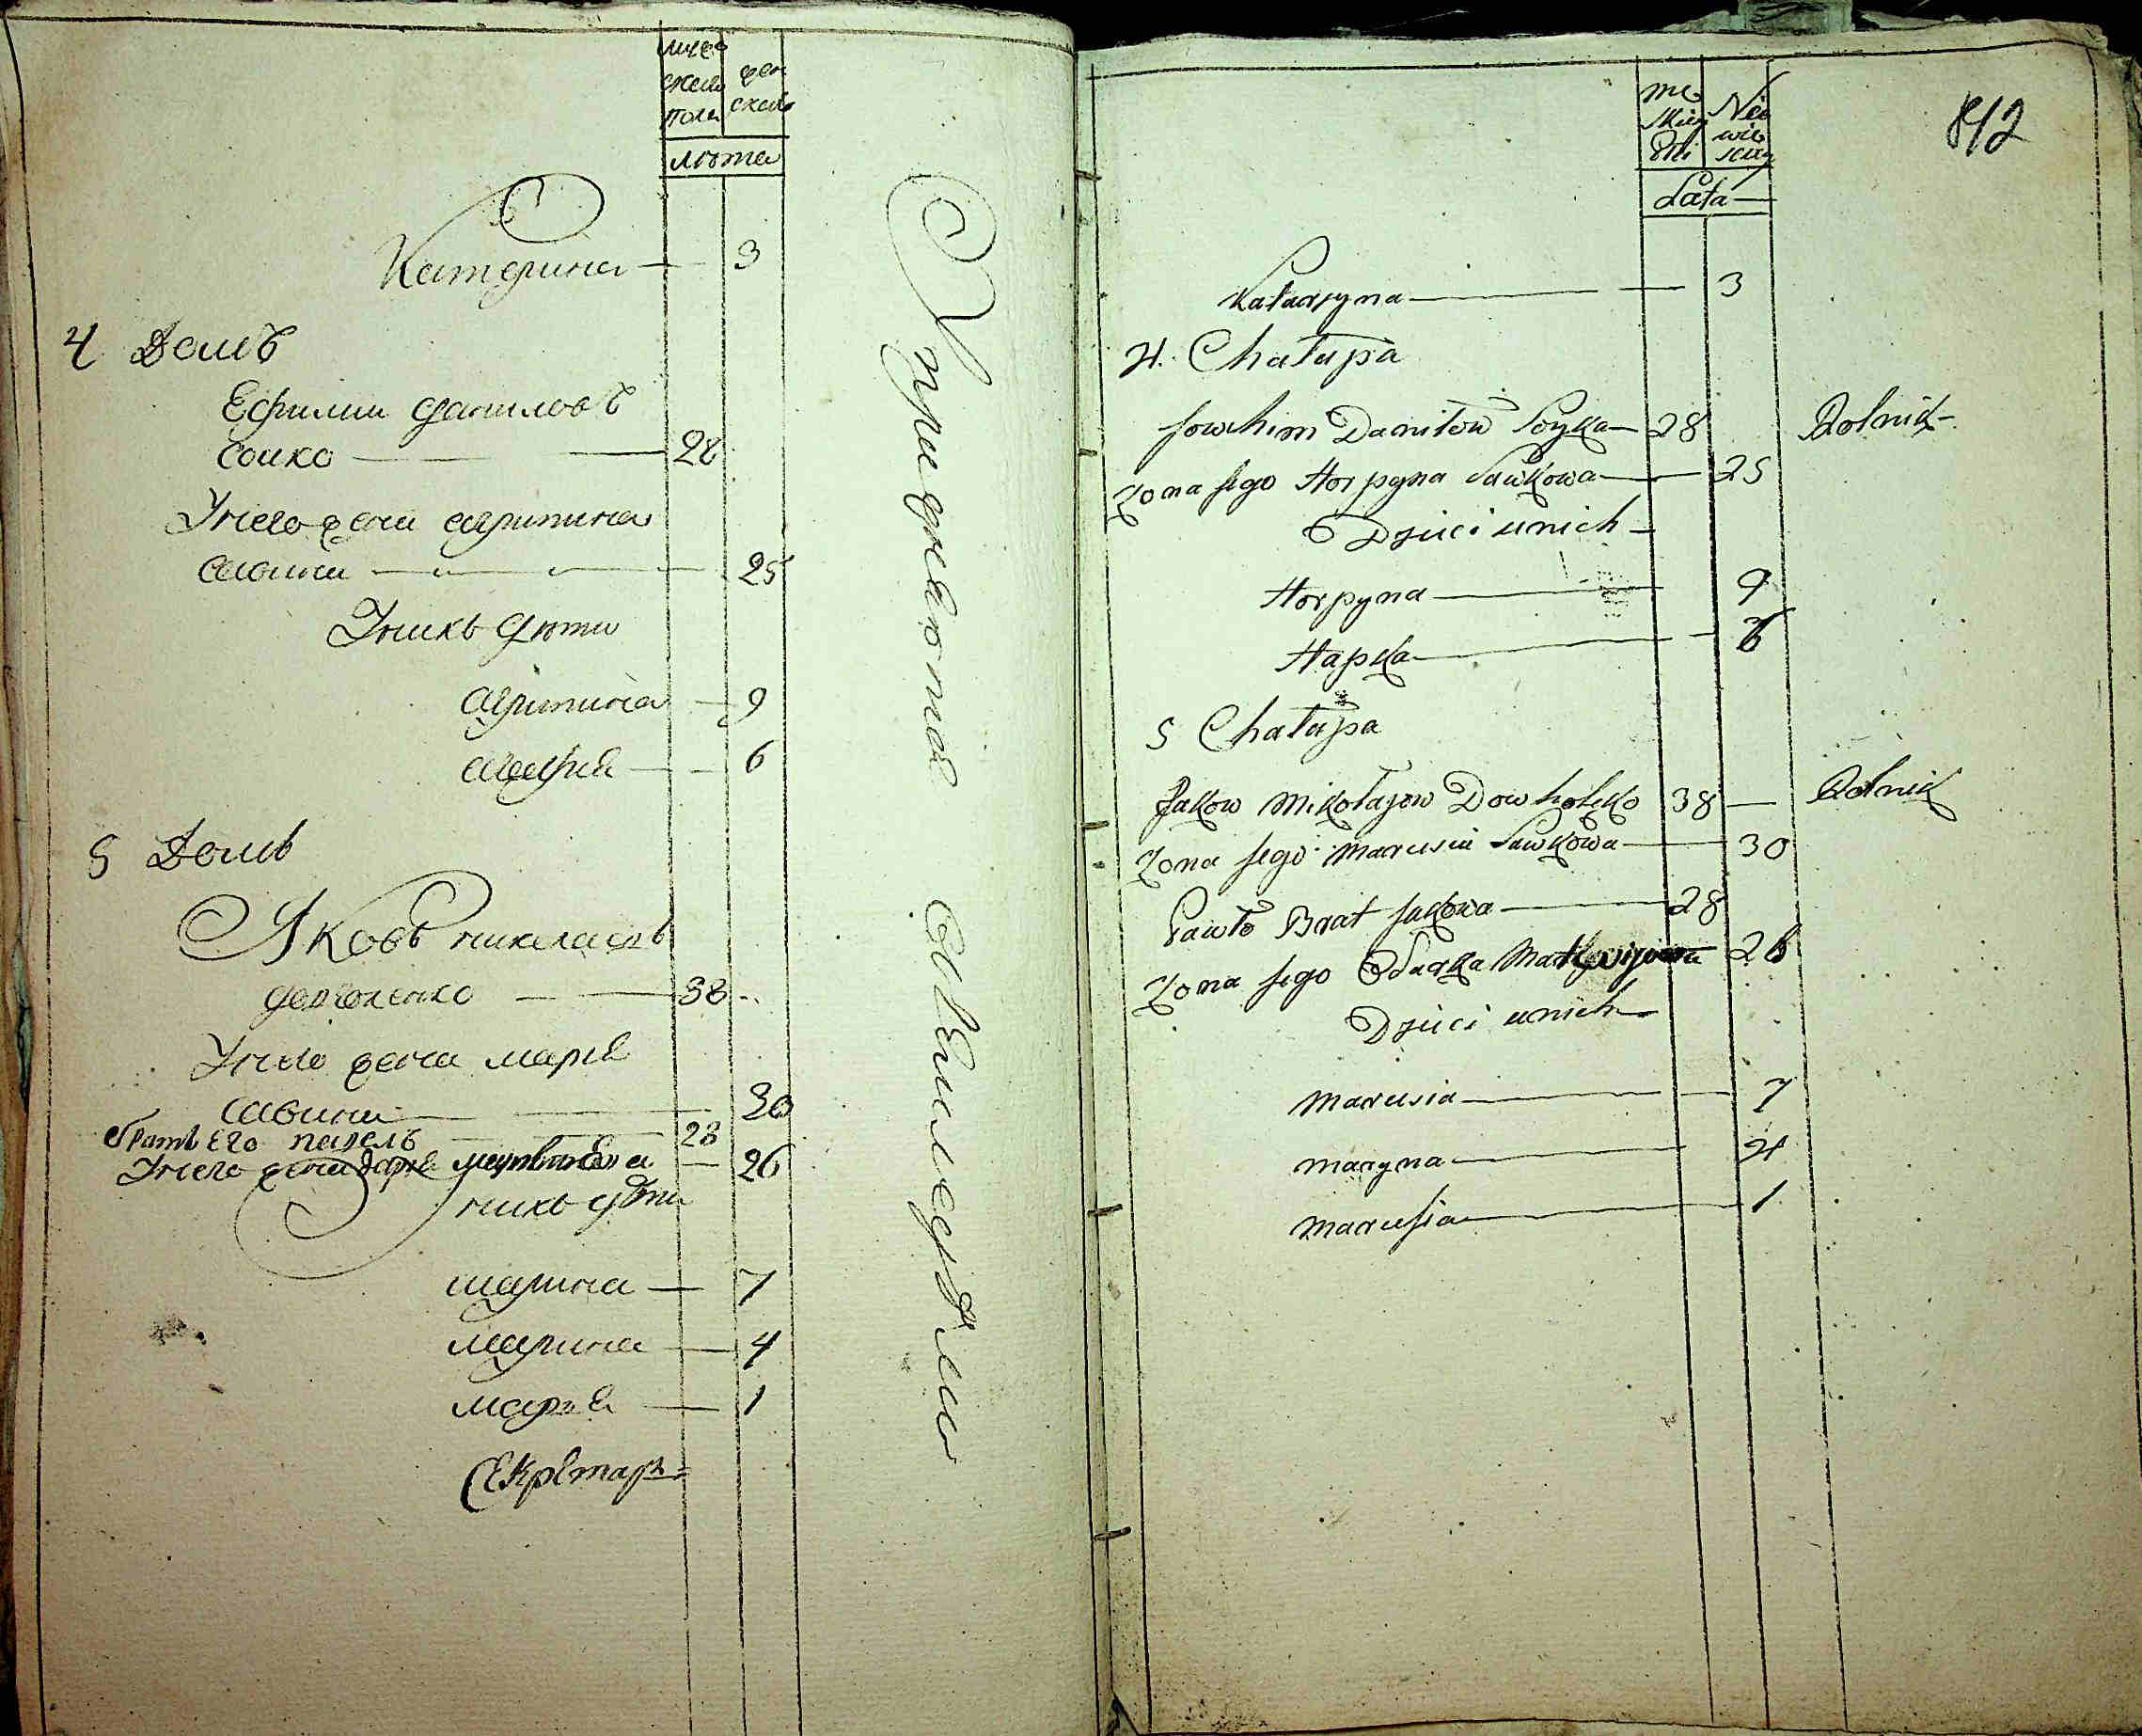 муже
ской
пола
жен
ской
лѣта
Катерина — 3
4 Домъ
Ефимии даниловъ
Соико — 28
Унего жена агрипина
савина — 25
Унихъ дѣти
агрипина — 9
агафия — 6
5 Домъ
Яковъ николаевъ
довголенко — 38
Унего жена марья
савина — 30
братъ его павелъ — 28
Унего жена дарья — 26
Унихъ дѣти
марина — 7
марина — 4
марья — 1
Секретарь
842
Mę
skiey
Płci
Nie
wie
sciey
Lata
Katarzyna — 3
4. Chałupa
Jowhim Daniłow Soyka — 28 Rolnik
Zona jego Horpyna Sawkowa — 25
Dzieci u nich
Horpyna — 9
Hapka — 6
5 Chałupa
Jakow Mikołajow Dowholeko 38 — Rolnik
Zona jego Marusia Sawkowa — 30
Pawło Brat Jakowa — 28
Zona jego Odarka Matwijowa 26
Dzieci u nich
Marusia — 7
Maryna — 4
Marusia — 1